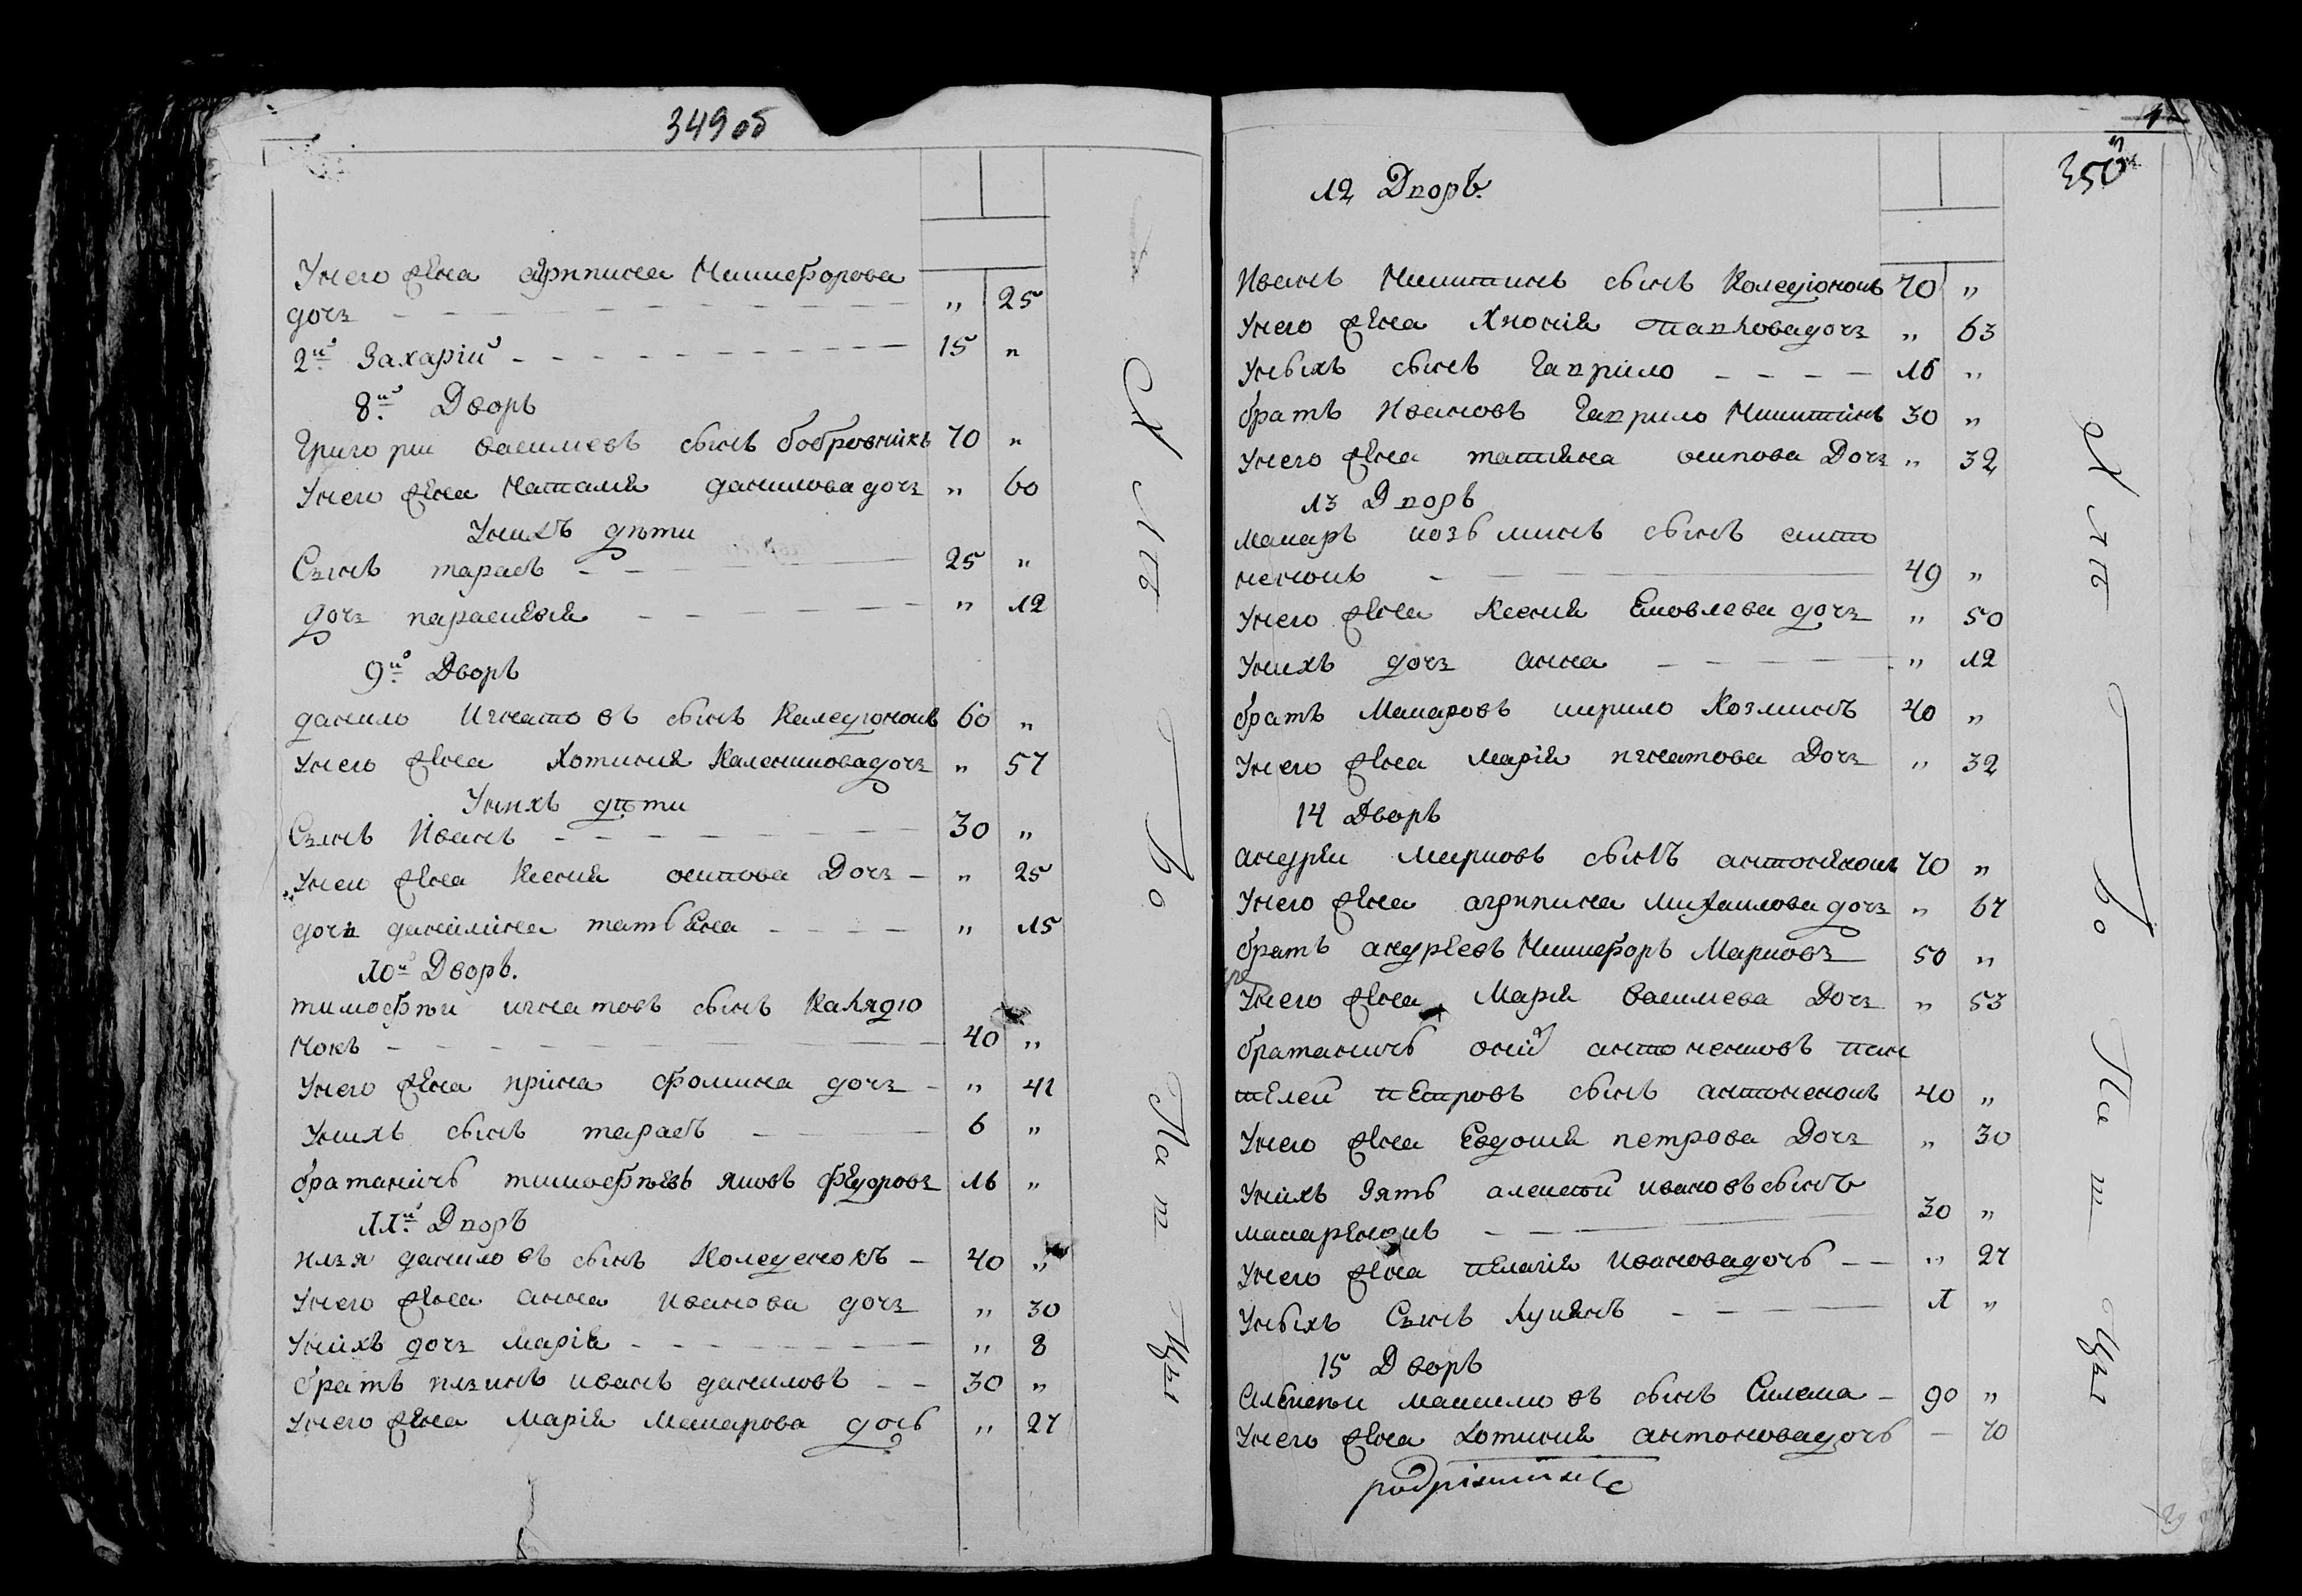 349 об
У него жена агрипина Никифорова
дочъ — " 25
2й Захарій — 15 "
8й Дворъ
Григорий васильевъ сынъ бобровникъ 70 "
У него жена Наталия данилова дочъ " 60
У нихъ дѣти
Сынъ тарасъ — 25 "
дочъ параския — " 12
9й Дворъ
данило Игнатовъ сынъ Каледюнокъ 60 "
У него жена Хотиния Каленикова дочъ " 57
У нихъ дѣти
Сынъ Иванъ — 30 "
У него жена Ксения осипова Дочъ — " 25
дочъ данилина татьяна — " 15
10й Дворъ.
тимофѣй игнатовъ сынъ Калядю
нокъ — 40 "
У него жена ирина фомина дочъ — " 41
У нихъ сынъ тарасъ — 6 "
братаничъ тимофѣевъ яковъ федоровъ 16 "
11й Дворъ
илья даниловъ сынъ Коледенокъ — 40 "
У него жена анна иванова дочъ " 30
У нихъ дочъ Марія — " 8
братъ ильинъ иванъ даниловъ — 30 "
У него жена Марія Макарова дочь " 27
Лѣтъ
По
Па ш
Цы
350
12 Дворъ.
Иванъ Никитинъ сынъ Каледюнокъ 70 "
У него жена павлова дочъ " 63
У ныхъ сынъ Гаврило — 15 "
братъ Ивановъ Гаврило Никитинъ 30 "
У него жена татіяна осипова Дочъ " 32
13 Дворъ
Макаръ козьминъ сынъ анто
ненокъ — 49 "
У него жена Ксения Яковлева дочъ " 50
У нихъ дочъ анна — " 12
братъ Макаровъ кирило Козминъ 40 "
У него жена Марія игнатова Дочъ " 32
14 Дворъ
андрей Марковъ сынъ антоненокъ 70 "
У него жена агрипина Михаилова дочъ " 67
братъ андреевъ Никифоръ Марковъ 50 "
У него жена Марія Васильева Дочъ " 53
братаничъ оний антоненковъ пан
телей петровъ сынъ антоненокъ 40 "
У него жена Евдокия петрова Дочъ " 30
У нихъ Зять алексей ивановъ сынъ
макаренокъ — 30 "
У него жена пелагия Иванова дочь — " 27
У ныхъ Сынъ Лукянъ — 1 "
15 Дворъ
Алексѣй Максимовъ сынъ Силена — 90 "
У него жена Хотиния антонова дочь — 70
Лѣтъ
По
Па ш
Цы